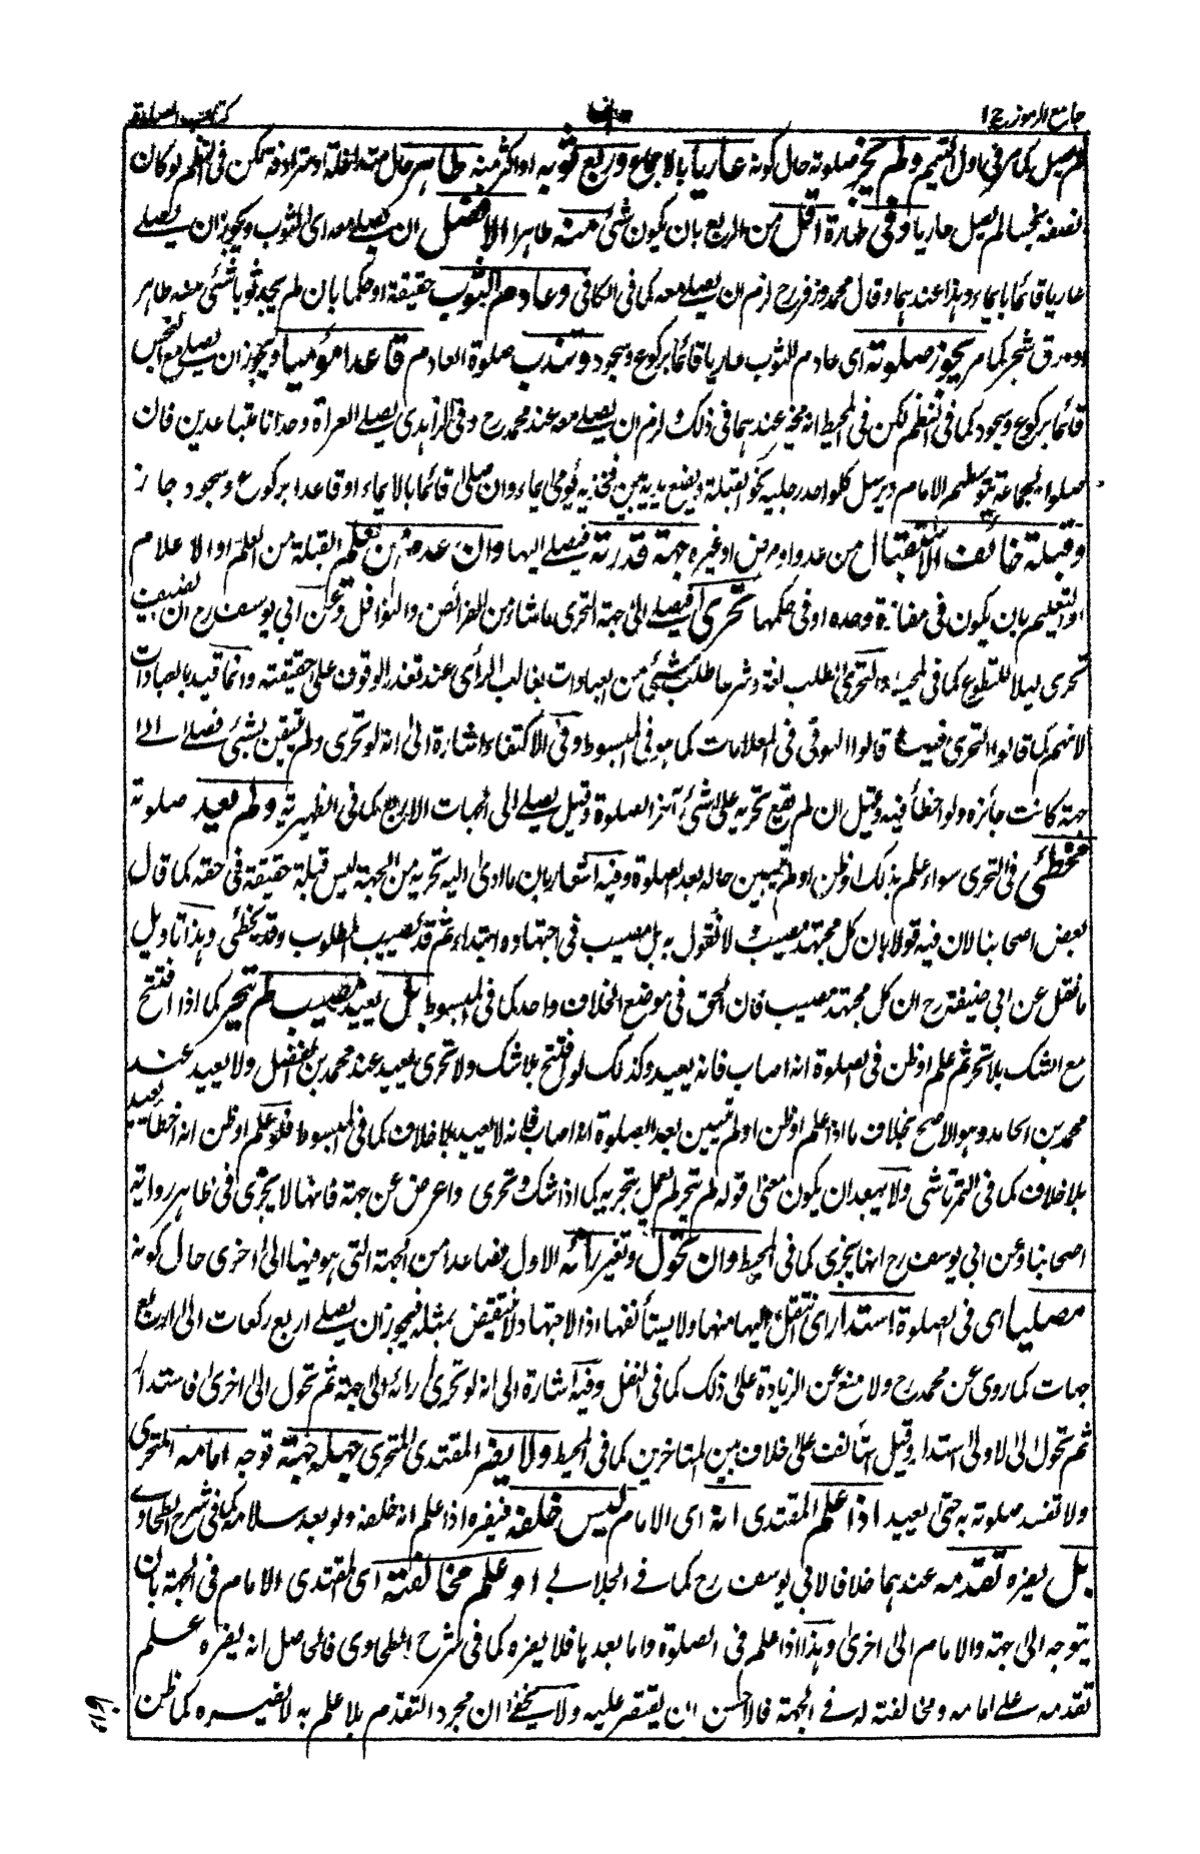 جامع الرموز ج ١
كتاب الصلوة
لم يصل كما مر في اول التيمم ولم يجز صلوته حال كونه عاريا بالاجماع وربع ثوبه او اكثر منه طاهر حال متداخلة او مترادفة تمكن في النظم لو كان
نصفه نجسا لم يصل عاريا وفي طهارة اقل من الربع بان يكون شئ منه طاهرا الافضل ان يصلے معه اى الثوب ويجوز ان يصلے
عاريا قائما بايماء وهذا عندهما وقال محمد وزفر رح لزم ان يصلے معه كما في الكافى وعادم الثوب حقيقة او حكما بان لم يجد ثوبا شئ منه طاهر
او ورق شجر كما مر يجوز صلوته اى عادم الثوب عاريا قائما بركوع وسجود وندب صلوة العادم قاعدا موميا ويجوز ان يصلے مع النجس
قائما بركوع وسجود كما في النظم لكن في المحيط انه مخير عندهما في ذلك ولزم ان يصلے معه عند محمد رح وفى الزاهدى يصلے العراة وحدانا متباعدين فان
صلوا بجماعة يتوسلهم الامام ويرسل كلواحد رجليه نحو القبلة ويضع يديه بين فخذيه يؤمى ايماء وان صلى قائما بالايماء او قاعدا بركوع وسجود جاز
وقبلة خائف الاستقبال من عدو او مرض او غيره جهة قدرته فيصلے اليها وان عدم من يعلم القبلة من العلم او الاعلام
او التعليم بان يكون في مفازة وحده او في حكمها تحرى فيصلے الى جهة التحرى ما شاء من الفرائض والنوافل وعن ابى يوسف رح ان لضيف
تحرى ليلا للتطوع كما في المحيط والتحرى الطلب لغة وشرعا طلب شئ من العبادات بغالب الرأى عند تعذر الوقوف على حقيقته وانما قيد بالعبادات
لانهم كما قالوا التحرى فيها قالوا التوقى فى المعاملات كما هو فى المبسوط وفى الاكتفاء اشارة الى انه لو تحرى ولم يتيقن بشئ فصلے الى اى
جهة كانت جائزه ولو اخطأ فيه وقيل ان لم يقع تحريه على شئ اخر الصلوة وقيل يصلے الى الجهات الاربع كما فى الظهيرية ولم يعد صلوته
مخطئ فى التحرى سواء علم بذلك او ظن او لم يتبين حاله بعد الصلوة وفيه اشعار بان ما ادى اليه تحريه من الجهة ليس قبلة حقيقة فى حقه كما قال
بعض اصحابنا لان فيه قولا بان كل مجتهد مصيب ولا نقول به بل مصيب فى اجتهاده ابتداء ثم قد يصيب المطلوب وقد يخطئ وهذا تاويل
ما نقل عن ابى حنيفة رح ان كل مجتهد مصيب فان الحق فى موضع الخلاف واحد كما فى المبسوط بل يعيد مصيب لم يتحر كما اذا افتتح
مع الشك بلا تحر ثم علم او ظن فى الصلوة انه اصاب فانه يعيد وكذلك لو افتتح بلا شك ولا تحرى يعيد عند محمد بن الفضل ولا يعيد عند
محمد بن الحامد وهو الاصح بخلاف ما اذا علم او ظن او لم يتبين بعد الصلوة انه اصاب فانه لا يعيد بلا خلاف كما فى المبسوط فلو علم او ظن انه اخطأ يعيد
بلا خلاف كما فى التمرتاشى ولا يبعد ان يكون معنى قوله لم يتحر لم يعمل بتحريه كما اذا شك وتحرى واعرض عن جهة فانها لا يجزى فى ظاهر رواية
اصحابنا وعن ابى يوسف رح انها يجزى كما فى المحيط وان تحول وتغير رائه الاول فصاعدا من الجهة التى هو فيها الى اخرى حال كونه
مصليا اى فى الصلوة استدار اى انتقل اليها منها ولا يستأنفها اذ الاجتهاد لا ينتقض بمثله فيجوز ان يصلے اربع ركعات الى اربع
جهات كما روى عن محمد رح ولا منع عن الزيادة على ذلك كما فى النفل وفيه اشارة الى انه لو تحرى رائه الى جهة ثم تحول الى اخرى فاستدار
ثم تحول الى الاولى استدار وقيل استأنف على خلاف بين المتاخرين كما فى المحيط ولا يضر المقتدى المتحرى جهله جهة توجه امامه المتحرى
ولا تفسد صلوته به حتى يعيد اذا علم المقتدى انه اى الامام ليس خلفه فيضره اذا علم انه خلفه ولو بعد سلامه كما فى شرح الطحاوى
بل يضره تقدمه عندهما خلافا لابى يوسف رح كما فے الجلابے او علم مخالفته اى المقتدى الامام فى الجهة بان
يتوجه الى جهة والامام الى اخرى وهذا اذا علم فى الصلوة واما بعدها فلا يضره كما فى شرح الطحاوى فالحاصل انه يضره علم
تقدمه علے امامه ومخالفته له فے الجهة فالاحسن ان يقتصر عليه ولا يخفے ان مجرد التقدم بلا علم به لا يضره كما ظن